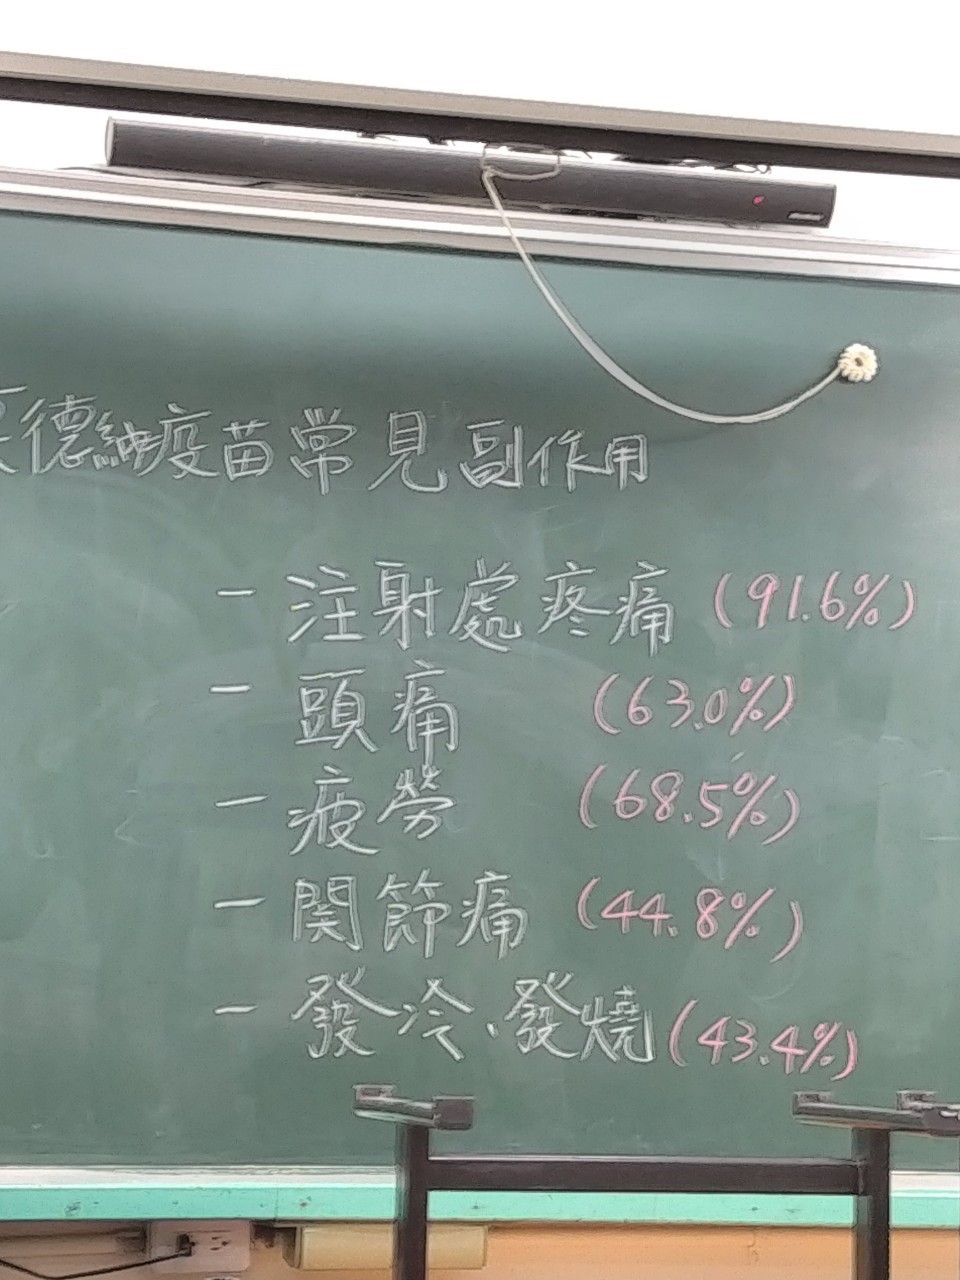 德納疫苗常見副作用
- 注射處疼痛 (91.6%)
- 頭痛 (63.0%)
- 疲勞 (68.5%)
- 関節痛 (44.8%)
- 發冷、發燒 (43.4%)